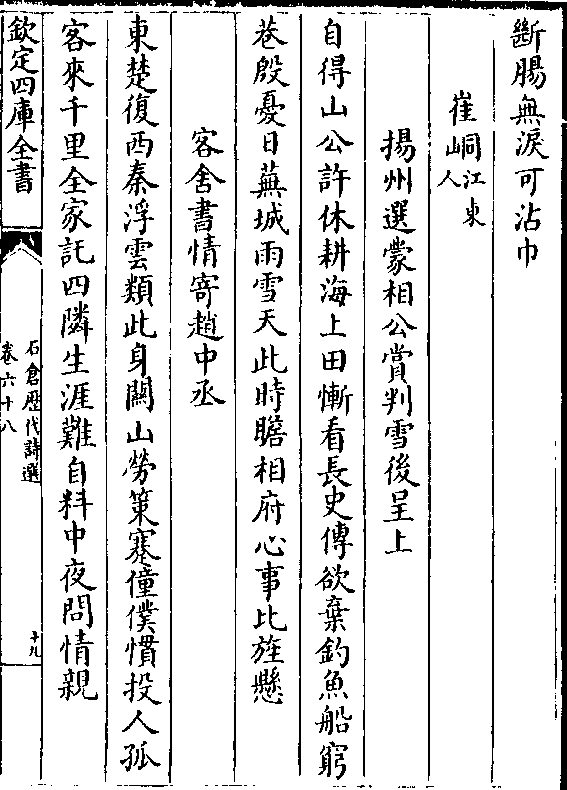 斷腸無淚可沾巾
崔峒江東人
揚州選蒙相公賞判雪後呈上
自得山公許休耕海上田慚看長史傳欲棄釣魚船窮
巷殷憂日蕪城雨雪天此時瞻相府心事比旌懸
客舍書情寄趙中丞
東楚復西秦浮雲類此身關山勞策蹇僮僕慣投人孤
客來千里全家託四隣生涯難自料中夜問情親
欽定四庫全書
石倉歷代詩選
卷六十八
十九